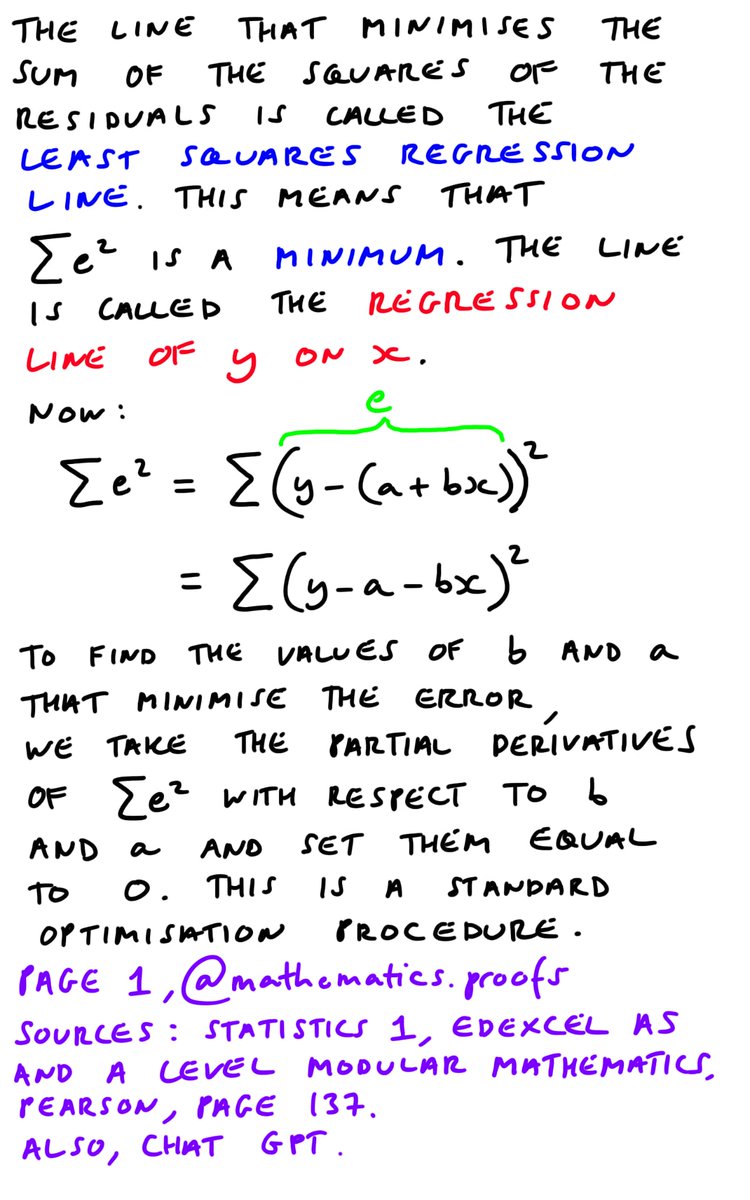 THE LINE THAT MINIMISES THE
SUM OF THE SQUARES OF THE
RESIDUALS IS CALLED THE
LEAST SQUARES REGRESSION
LINE. THIS MEANS THAT
∑e² IS A MINIMUM. THE LINE
IS CALLED THE REGRESSION
LINE OF y ON x.
NOW:
e
∑e² = ∑(y-(a+bx))²
= ∑(y-a-bx)²
TO FIND THE VALUES OF b AND a
THAT MINIMISE THE ERROR,
WE TAKE THE PARTIAL DERIVATIVES
OF ∑e² WITH RESPECT TO b
AND a AND SET THEM EQUAL
TO 0. THIS IS A STANDARD
OPTIMISATION PROCEDURE.
PAGE 1, @mathematics.proofs
SOURCES: STATISTICS 1, EDEXCEL AS
AND A LEVEL MODULAR MATHEMATICS,
PEARSON, PAGE 137.
ALSO, CHAT GPT.